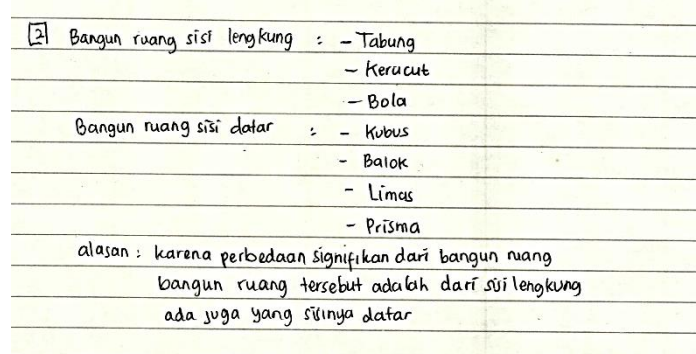 2 Bangun ruang sisi lengkung : - Tabung
- Kerucut
- Bola
Bangun ruang sisi datar : - Kubus
- Balok
- Limas
- Prisma
alasan : karena perbedaan signifikan dari bangun ruang
bangun ruang tersebut adalah dari sisi lengkung
ada juga yang sisinya datar